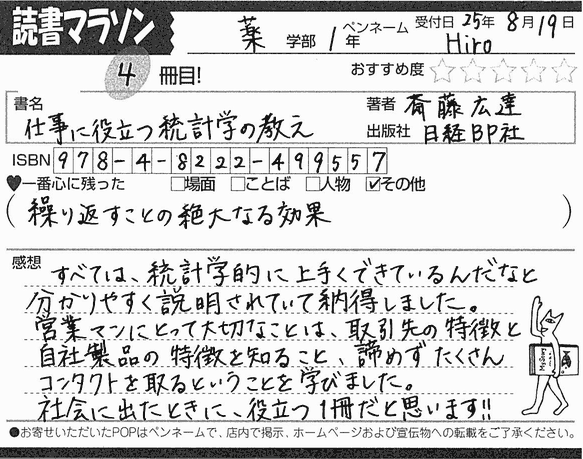 読書マラソン
薬 学部 1年 ペンネーム Hiro 受付日 25年 8月19日
4 冊目!
おすすめ度 ☆☆☆☆☆
書名 仕事に役立つ統計学の教え
著者 斉藤広達
出版社 日経BP社
ISBN 978-4-8222-499557
♥一番心に残った □場面 □ことば □人物 ☑その他
(繰り返すことの絶大なる効果)
感想
すべては、統計学的に上手くできているんだなと
分かりやすく説明されていて納得しました。
営業マンにとって大切なことは、取引先の特徴と
自社製品の特徴を知ること、諦めずたくさん
コンタクトを取るということを学びました。
社会に出たときに、役立つ1冊だと思います!!
●お寄せいただいたPOPはペンネームで、店内で掲示、ホームページおよび宣伝物への転載をご了承ください。